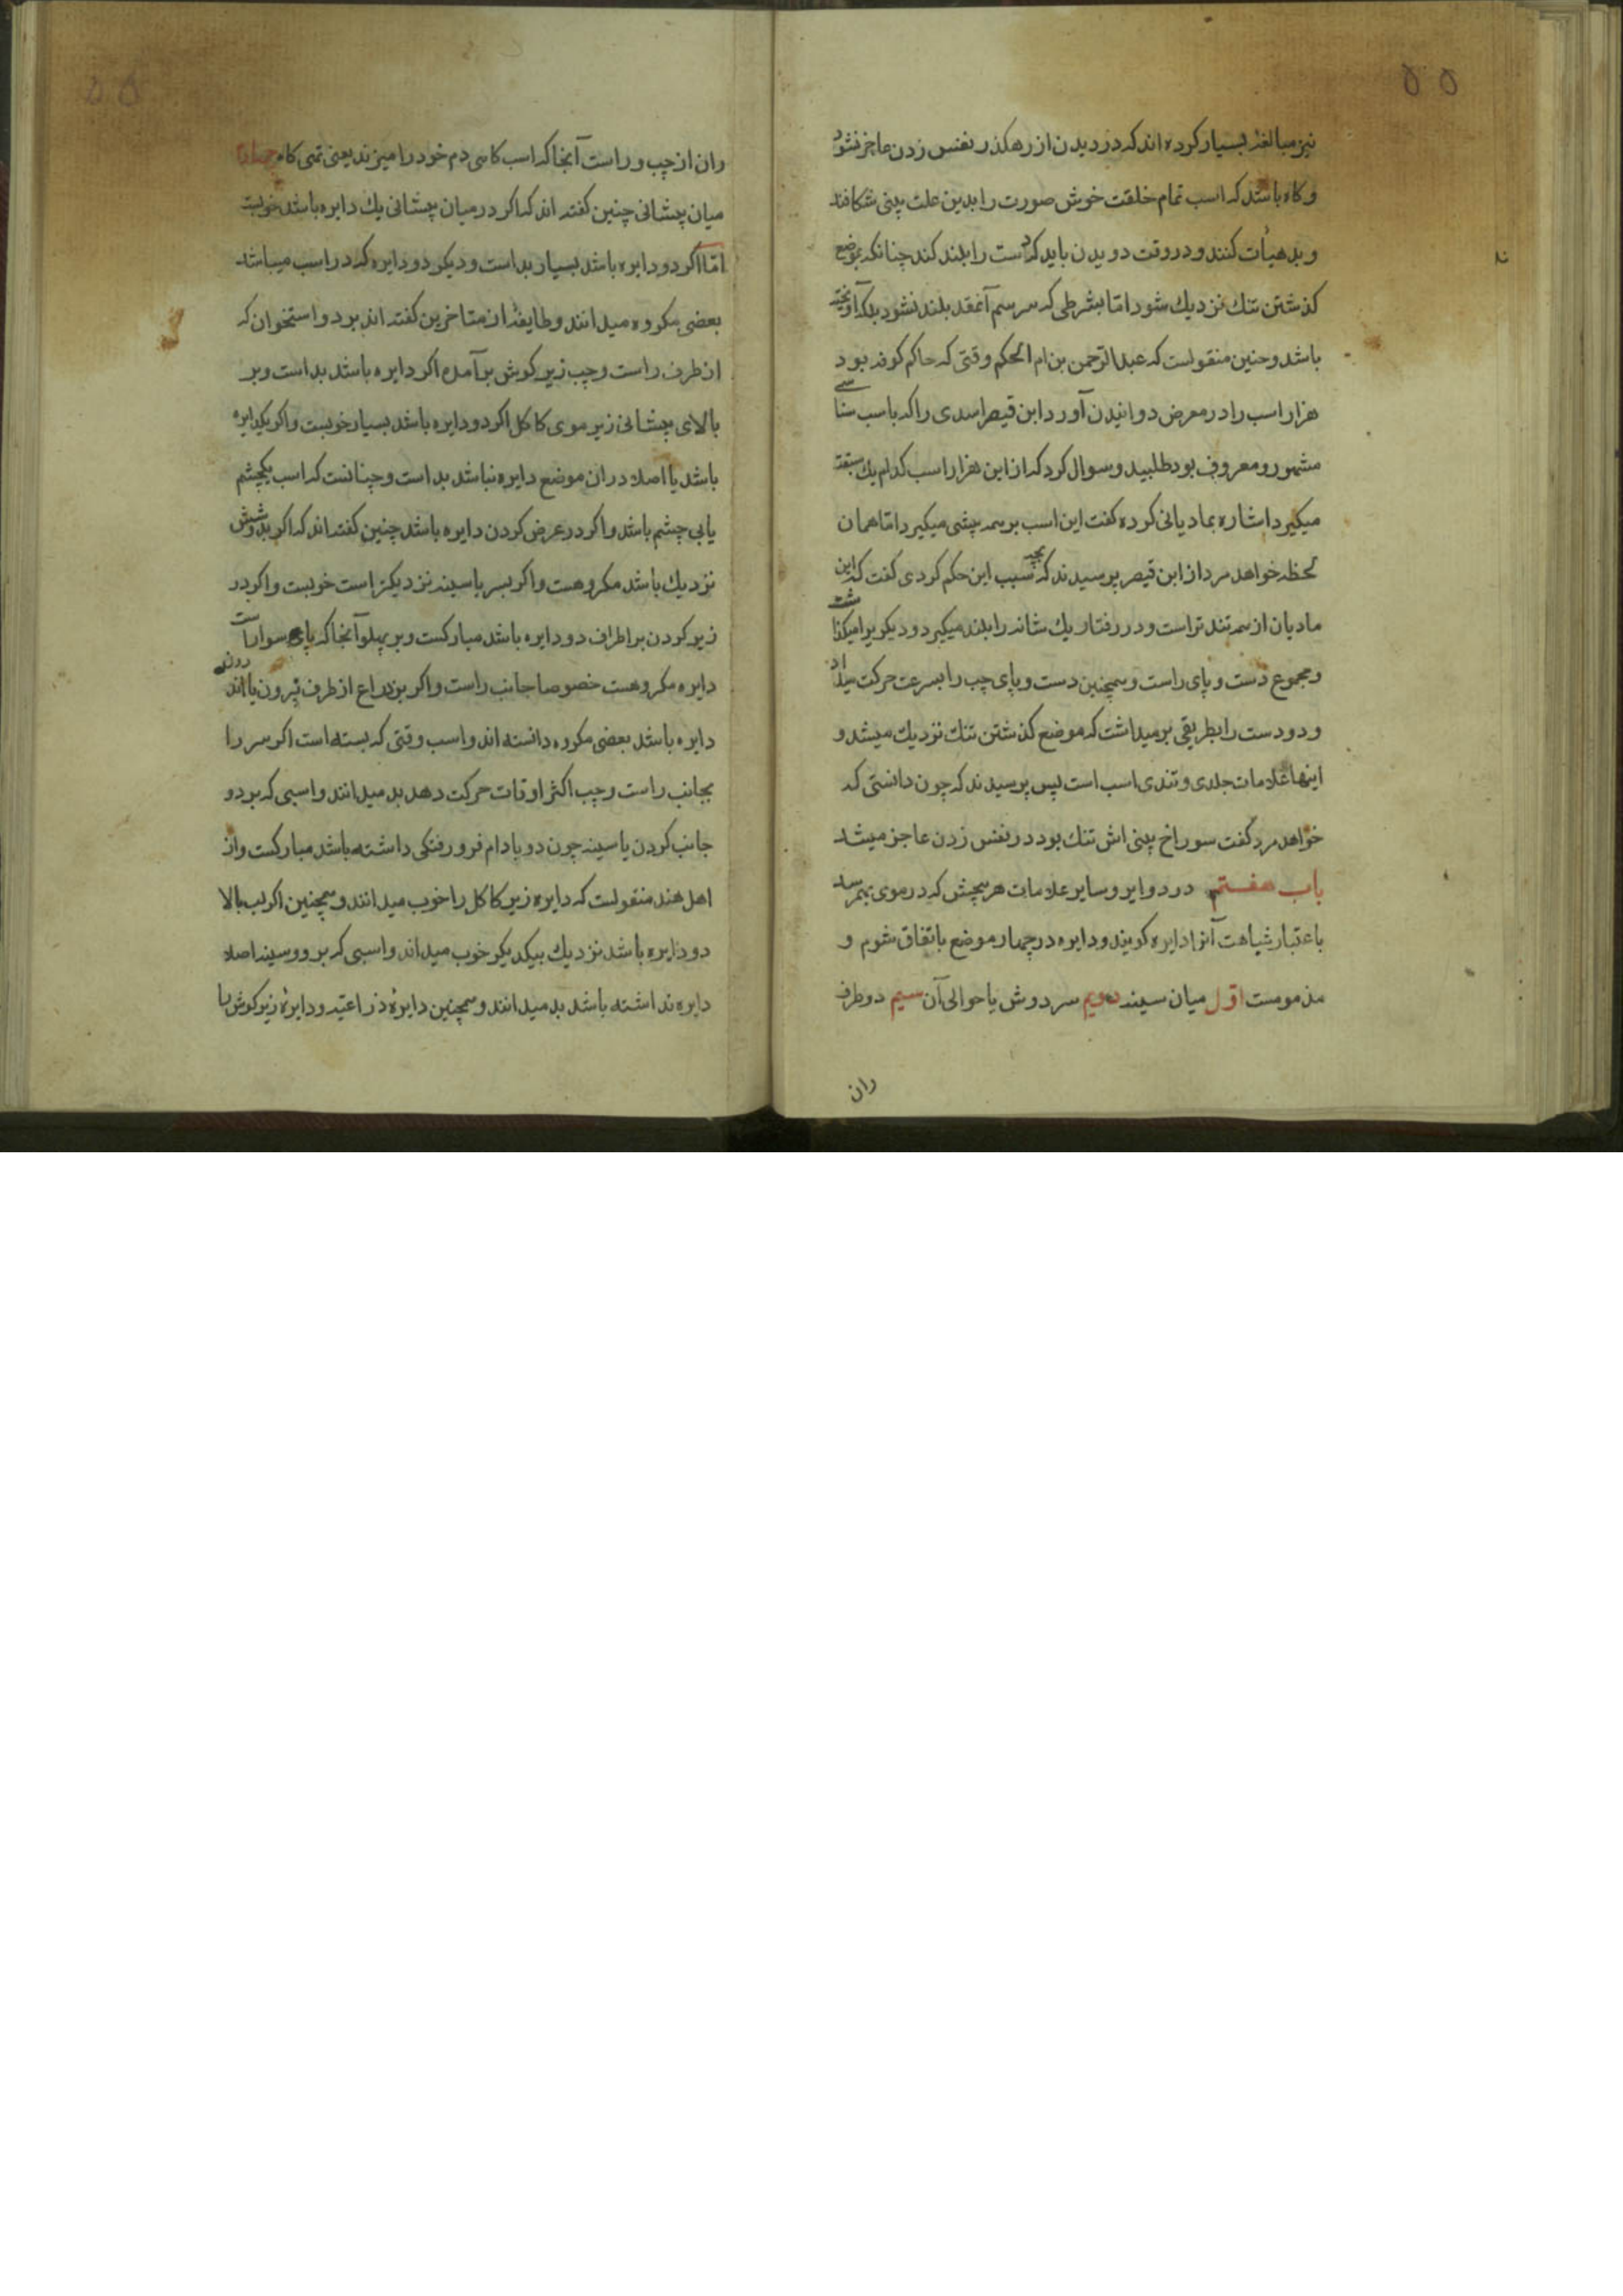 ۵۵
نیز مبالغهٔ بسیار کرده اند که در دویدن از رهکذر نفس زدن عاجز نشود
و کاه باشد که اسب تمام خلقت خوش صورت را بدین علت بینی شکافند
و بد هیأت کنند و در وقت دویدن باید که دست را بلند کند چنانکه بموضع
کذشتن تنك نزدیك شود اما بشرطی که سر سم آنقد بلند نشود بلکه آویخته
باشد و چنین منقولست که عبد الرحمن بن ام الحکم وقتی که حاکم کوفه بود
هزار اسب را در معرض دوانیدن آورد ابن قیصر اسدی را که باسب شناسی
مشهور و معروف بود طلبید و سوال کرد که از این هزار اسب کدام یك سبقت
میکیرد اشاره بمادیانی کرده کفت این اسب بر همه پیشی میکیرد اما همان
لحظه خواهد مرد از ابن قیصر پرسیدند که بچه سبب این حکم کردی کفت که این
مادیان از همه تند تر است و در رفتار یك شانه را بلند میکیرد و دیکریرا میکذاشت
و مجموع دست و پای راست و همچنین دست و پای چپ را بسرعت حرکت میداد
و دو دست را بطریقی بر میداشت که موضع کذشتن تنك نزدیك میشد و
اینها علامات جلدی و تندی اسب است پس پرسیدند که چون دانستی که
خواهد مرد کفت سوراخ بینی اش تنك بود در نفس زدن عاجز میشد
باب هفتم در دوایر و سایر علامات هر پیچش که در موی بهم رسد
باعتبار شباهت آنرا دایره کویند و دایره در چهار موضع باتفاق شوم و
مذمومست اول میان سینه دویم سر دوش یا حوالی آن سیم دو طرف
ران
ران از چپ و راست آنجا که اسب کاهی دم خود را میزند یعنی تهی کاه چهارم
میان پیشانی چنین کفته اند که اکر در میان پیشانی یك دایره باشد خوبست
اما اکر دو دایره باشد بسیار بد است و دیکر دو دایره که در اسب میباشد
بعضی مکروه میدانند و طایفهٔ از متاخرین کفته اند بر دو استخوان که
از طرف راست و چپ زیر کوش بر آمده اکر دایره باشد بد است و بر
بالای پیشانی زیر موی کاکل اکر دو دایره باشد بسیار خوبست و اکر یکدایره
باشد یا اصلا در ان موضع دایره نباشد بد است و چنانست که اسب یکچشم
یا بی چشم باشد و اکر در عرض کردن دایره باشد چنین کفته اند که اکر بدوشش
نزدیك باشد مکروهست و اکر بسر یا سینه نزدیکتر است خوبست و اکر در
زیر کردن بر اطراف دو دایره باشد مبارکست و بر پهلو آنجا که پای سوار است
دایره مکروهست خصوصا جانب راست و اکر بر ذراع از طرف بیرون یا اندرون
دایره باشد بعضی مکروه دانسته اند و اسب وقتی که بسته است اکر سر را
بجانب راست و چپ اکثر اوقات حرکت دهد بد میدانند و اسبی که بر دو
جانب کردن یا سینه چون دو بادام فرو رفتکی داشته باشد مبارکست و از
اهل هند منقولست که دایره زیر کاکل را خوب میدانند و همچنین اکر لب بالا
دو دایره باشد نزدیك بیکدیکر خوب میداند و اسبی که بر رو و سینه اصلا
دایره نداشته باشد بد میدانند و همچنین دایرهٔ ذراعیّه و دایرهٔ زیر کوش با